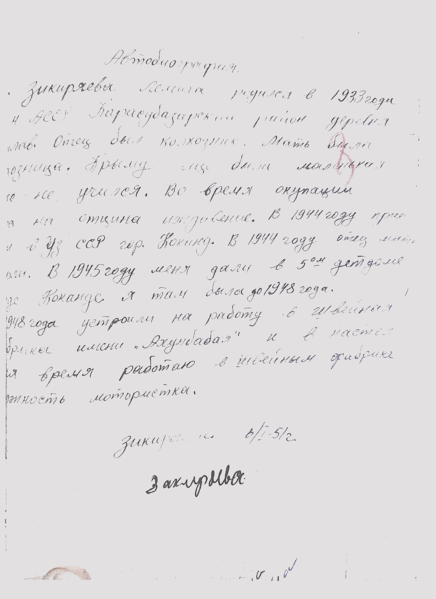 Автобиография.
Зикиряева родился в 1933 года
АССР Карасубазарский район деревня
Отец был колхозник. Мать была
Крыму еще была маленькая
не учился. Во время окупации
на отцина иждевение. В 1944 году
УзССР гор. Коканд. В 1944 году отец мать
В 1945 году меня дали в 5ом детдоме
Коканде я там была до 1948 года.
1948 года устроили на работу в швейная
имени „Ахунбабая" и в настоя
время работаю в швейным фабрика
мотористка.
Зикиря